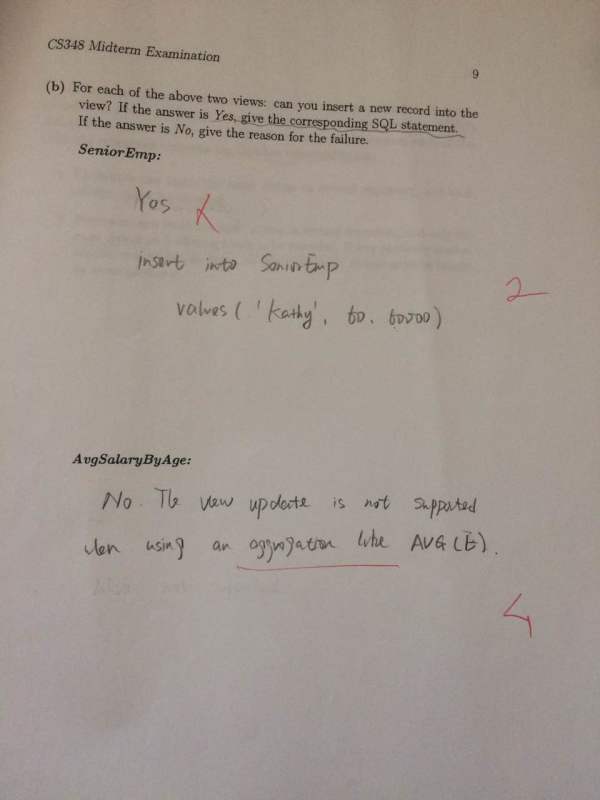 CS348 Midterm Examination
9
(b) For each of the above two views: can you insert a new record into the
view? If the answer is Yes, give the corresponding SQL statement.
If the answer is No, give the reason for the failure.
SeniorEmp:
Yes
insert into SeniorEmp
2
values ( 'Kathy', 60, 60000 )
AvgSalaryByAge:
No. The view update is not supported
when using an aggregation like AVG (E).
4